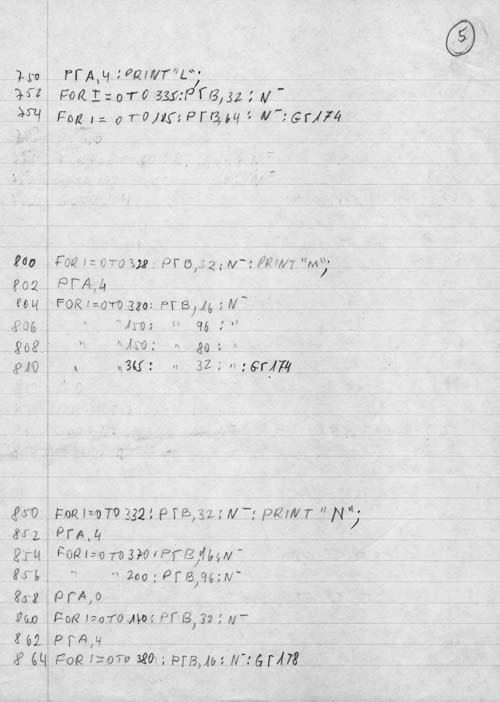 5
750 PΓA,4:PRINT"L";
752 FOR I=0TO335:PΓB,32:N–
754 FOR I=0TO185:PΓB,64:N–:GΓ174
800 FOR I=0TO328:PΓB,32:N–:PRINT"M";
802 PΓA,4
804 FOR I=0TO380:PΓB,16:N–
806 " "150: " 96: "
808 " "150: " 80: "
810 " "365: " 32: ":GΓ174
850 FOR I=0TO332:PΓB,32:N–:PRINT"N";
852 PΓA,4
854 FOR I=0TO370:PΓB,16:N–
856 " " 200:PΓB,96:N–
858 PΓA,0
860 FOR I=0TO140:PΓB,32:N–
862 PΓA,4
864 FOR I=0TO380:PΓB,16:N–:GΓ178